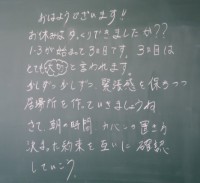 おはようございます!!
お休みはゆっくりできましたか??
1-3が始まって3日目です。3日目は
とても大切と言われます。
少しずつ少しずつ緊張感を保ちつつ
居場所を作っていきましょうね
さて、朝の時間 カバンの置き方
決まった約束を互いに確認
していこう。